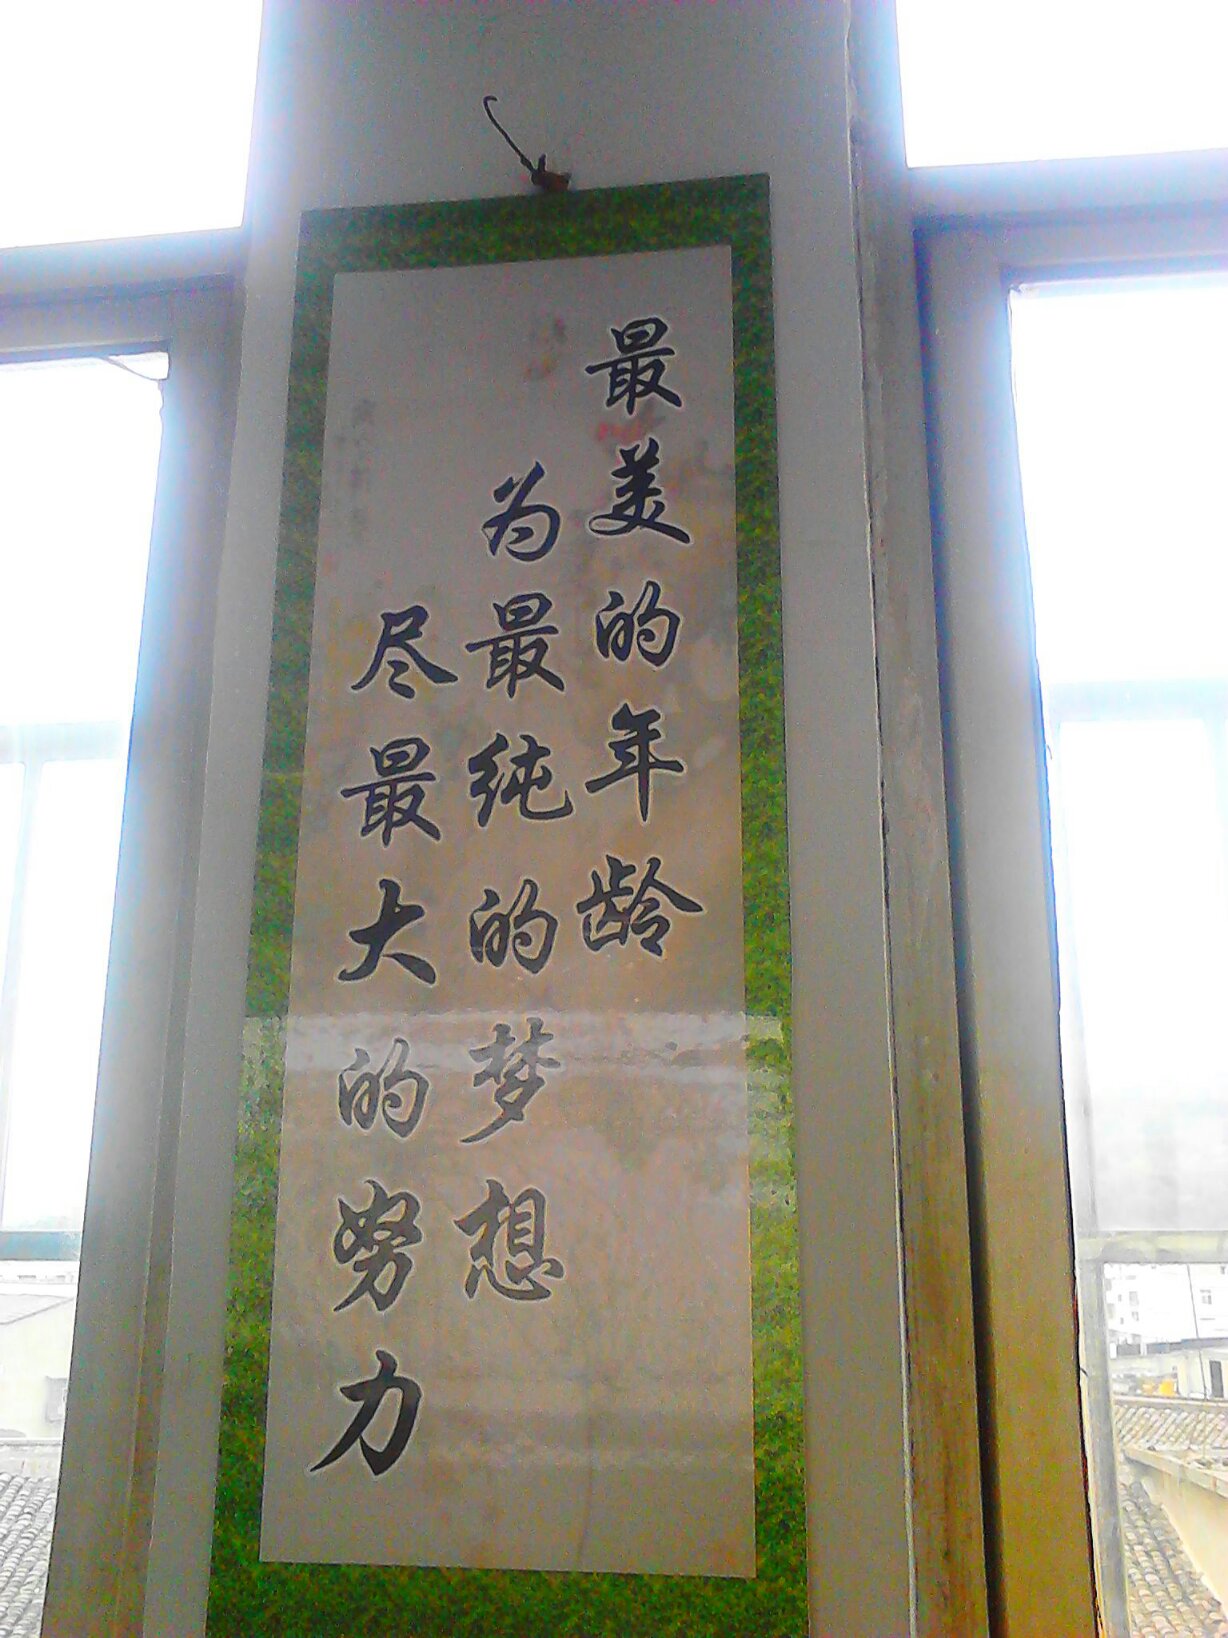 最美的年龄
为最纯的梦想
尽最大的努力